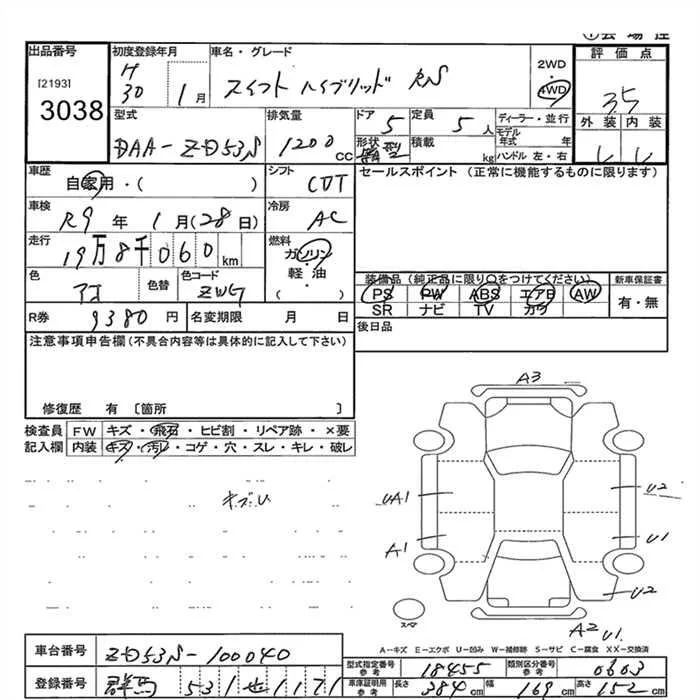 ①会場控
出品番号 初度登録年月 車名・グレード 2WD・4WD 評価点
[2193]
3038
H30 1月
スイフト ハイブリッド RS
3.5
型式 排気量 ドア 定員 ディーラー・並行 外装 内装
DAA-ZD53S 1200 CC 5 5人
形状 型 積載 kg モデル年式 年 ハンドル 左・右
車歴 シフト セールスポイント (正常に機能するものに限ります)
自家用・( ) CVT
車検 冷房
R9年 1月(28日) AC
走行 燃料
19万8千060km ガソリン・軽・油 ( )
色 色替 色コード 装備品(純正品に限り〇をつけてください) 新車保証書
ZWG PS PW ABS エアB AW 有・無
SR ナビ TV カワ
R券 9380円 名変期限 月 日 後日品
注意事項申告欄(不具合内容等は具体的に記入して下さい)
修復歴 有 〔箇所 〕
検査員記入欄 FW キズ・飛石・ヒビ割・リペア跡・×要
内装 キズ・汚レ・コゲ・穴・スレ・キレ・破レ
A3
キズU
UA1 U2
A1 U1
U2
スペア
A2 U1
A-キズ E-エクボ U-凹み W-補修跡 S-サビ C-腐食 XX-交換済
車台番号 ZD53S-100040
型式指定番号 参考 18455 類別区分番号 参考 0603
登録番号 群馬 531 せ 1171
車庫証明用 参考 長さ 384cm 幅 169cm 高さ 152cm